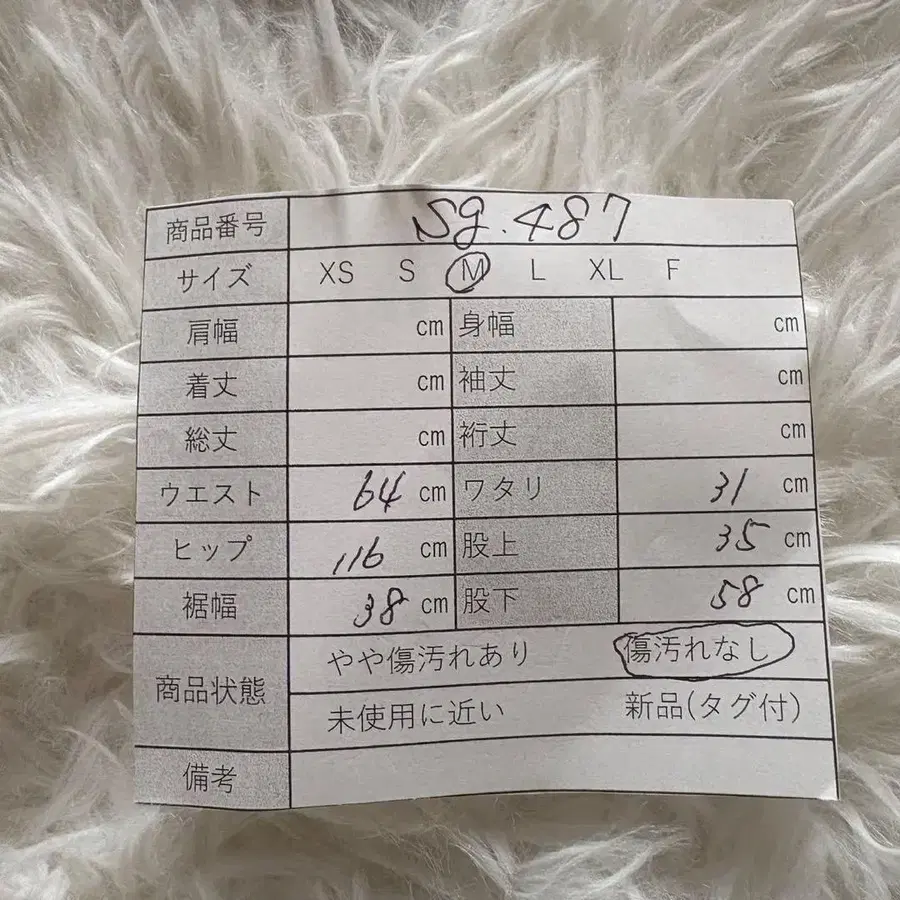 商品番号 Sg.487
サイズ XS S M L XL F
肩幅 cm 身幅 cm
着丈 cm 袖丈 cm
総丈 cm 裄丈 cm
ウエスト 64 cm ワタリ 31 cm
ヒップ 116 cm 股上 35 cm
裾幅 38 cm 股下 58 cm
商品状態 やや傷汚れあり 傷汚れなし
未使用に近い 新品(タグ付)
備考